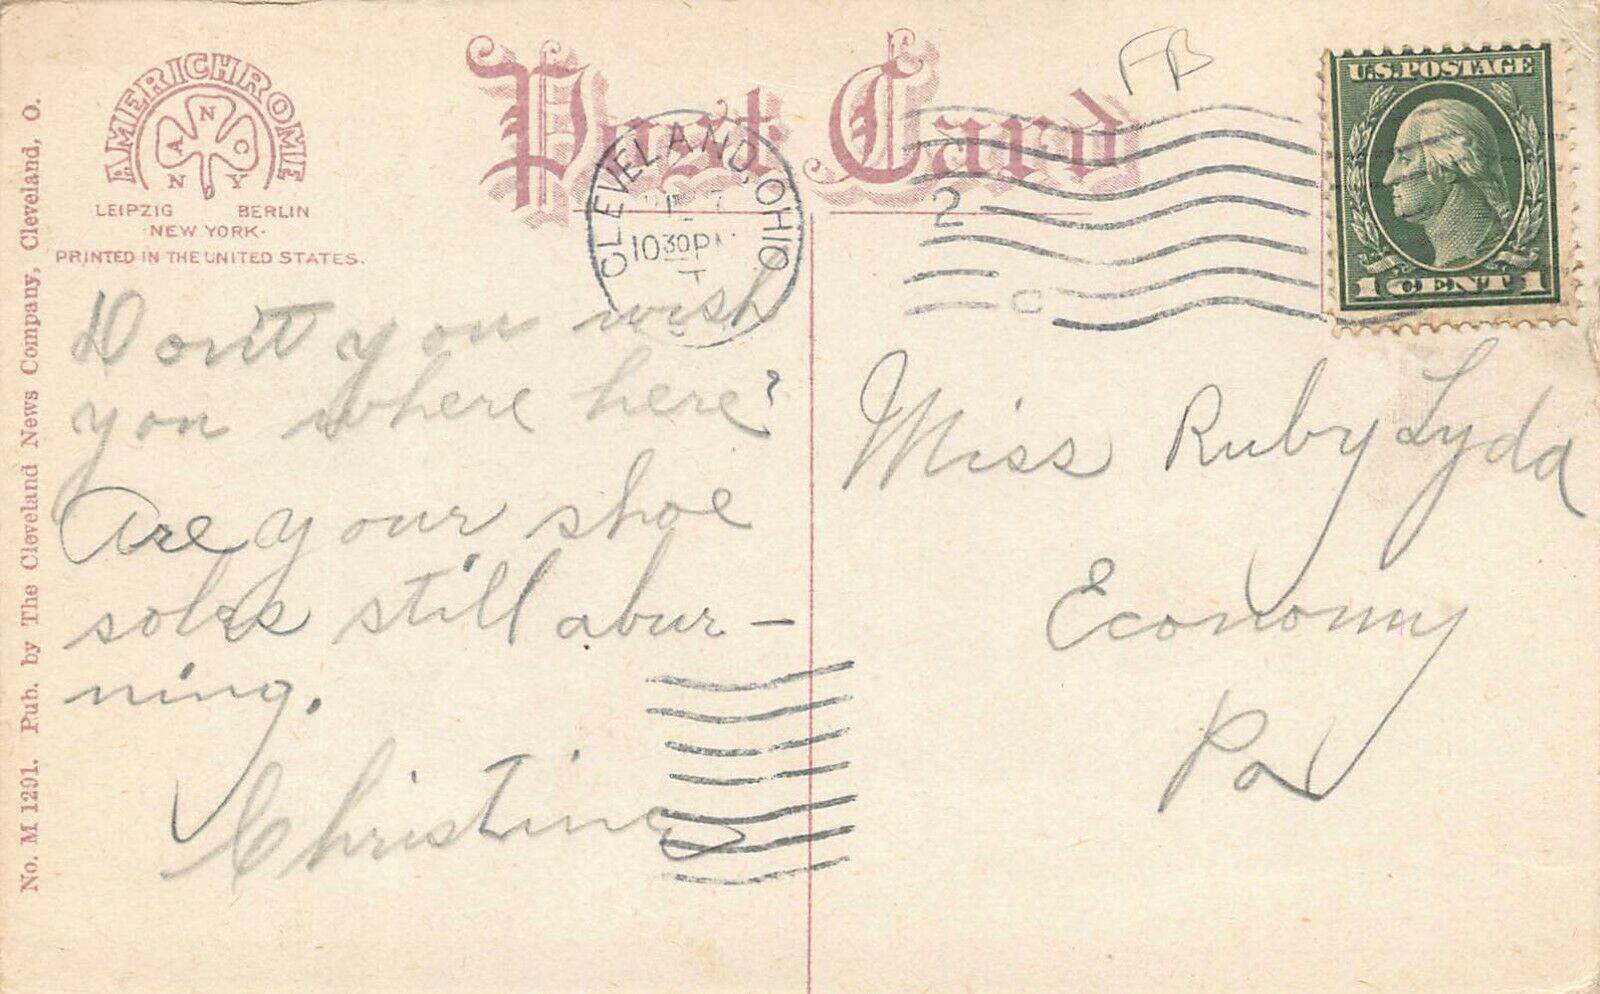 AMERICHROME
A N C
N Y
LEIPZIG BERLIN
·NEW YORK·
PRINTED IN THE UNITED STATES.
Post Card
FB
CLEVELAND, OHIO
10 30 PM
2
C
U.S. POSTAGE
1 CENT 1
No. M 1291. Pub. by The Cleveland News Company, Cleveland, O.
Don't you wish
you where here?
Are your shoe
soles still abur-
ning.
Christine
Miss Ruby Lyda
Economy
Pa